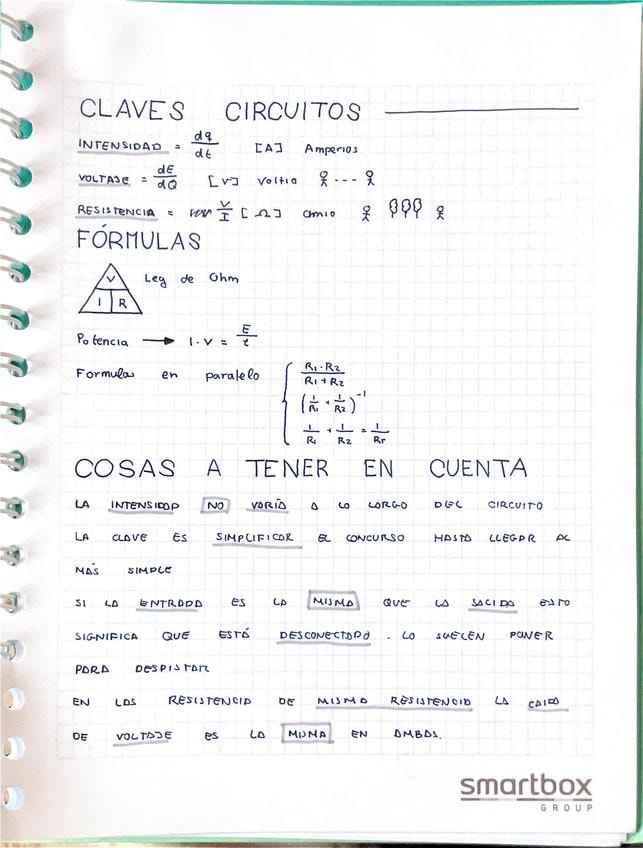 CLAVES CIRCUITOS
INTENSIDAD = dq/dt [A] Amperios
VOLTAJE = dE/dQ [V] Voltio
RESISTENCIA = V/I [Ω] Omio
FÓRMULAS
V I R Ley de Ohm
Potencia → I·V = E/t
Formulas en paralelo
R1·R2/R1+R2
(1/R1 + 1/R2)^-1
1/R1 + 1/R2 = 1/RT
COSAS A TENER EN CUENTA
LA INTENSIDAD NO VARÍA A LO LARGO DEL CIRCUITO
LA CLAVE ES SIMPLIFICAR EL CONCURSO HASTA LLEGAR AL
MÁS SIMPLE
SI LA ENTRADA ES LA MISMA QUE LA SALIDA ESTO
SIGNIFICA QUE ESTÁ DESCONECTADO. LO SUELEN PONER
PARA DESPISTAR
EN LAS RESISTENCIA DE MISMA RESISTENCIA LA CAIDA
DE VOLTAJE ES LA MISMA EN AMBAS.
smartbox
GROUP